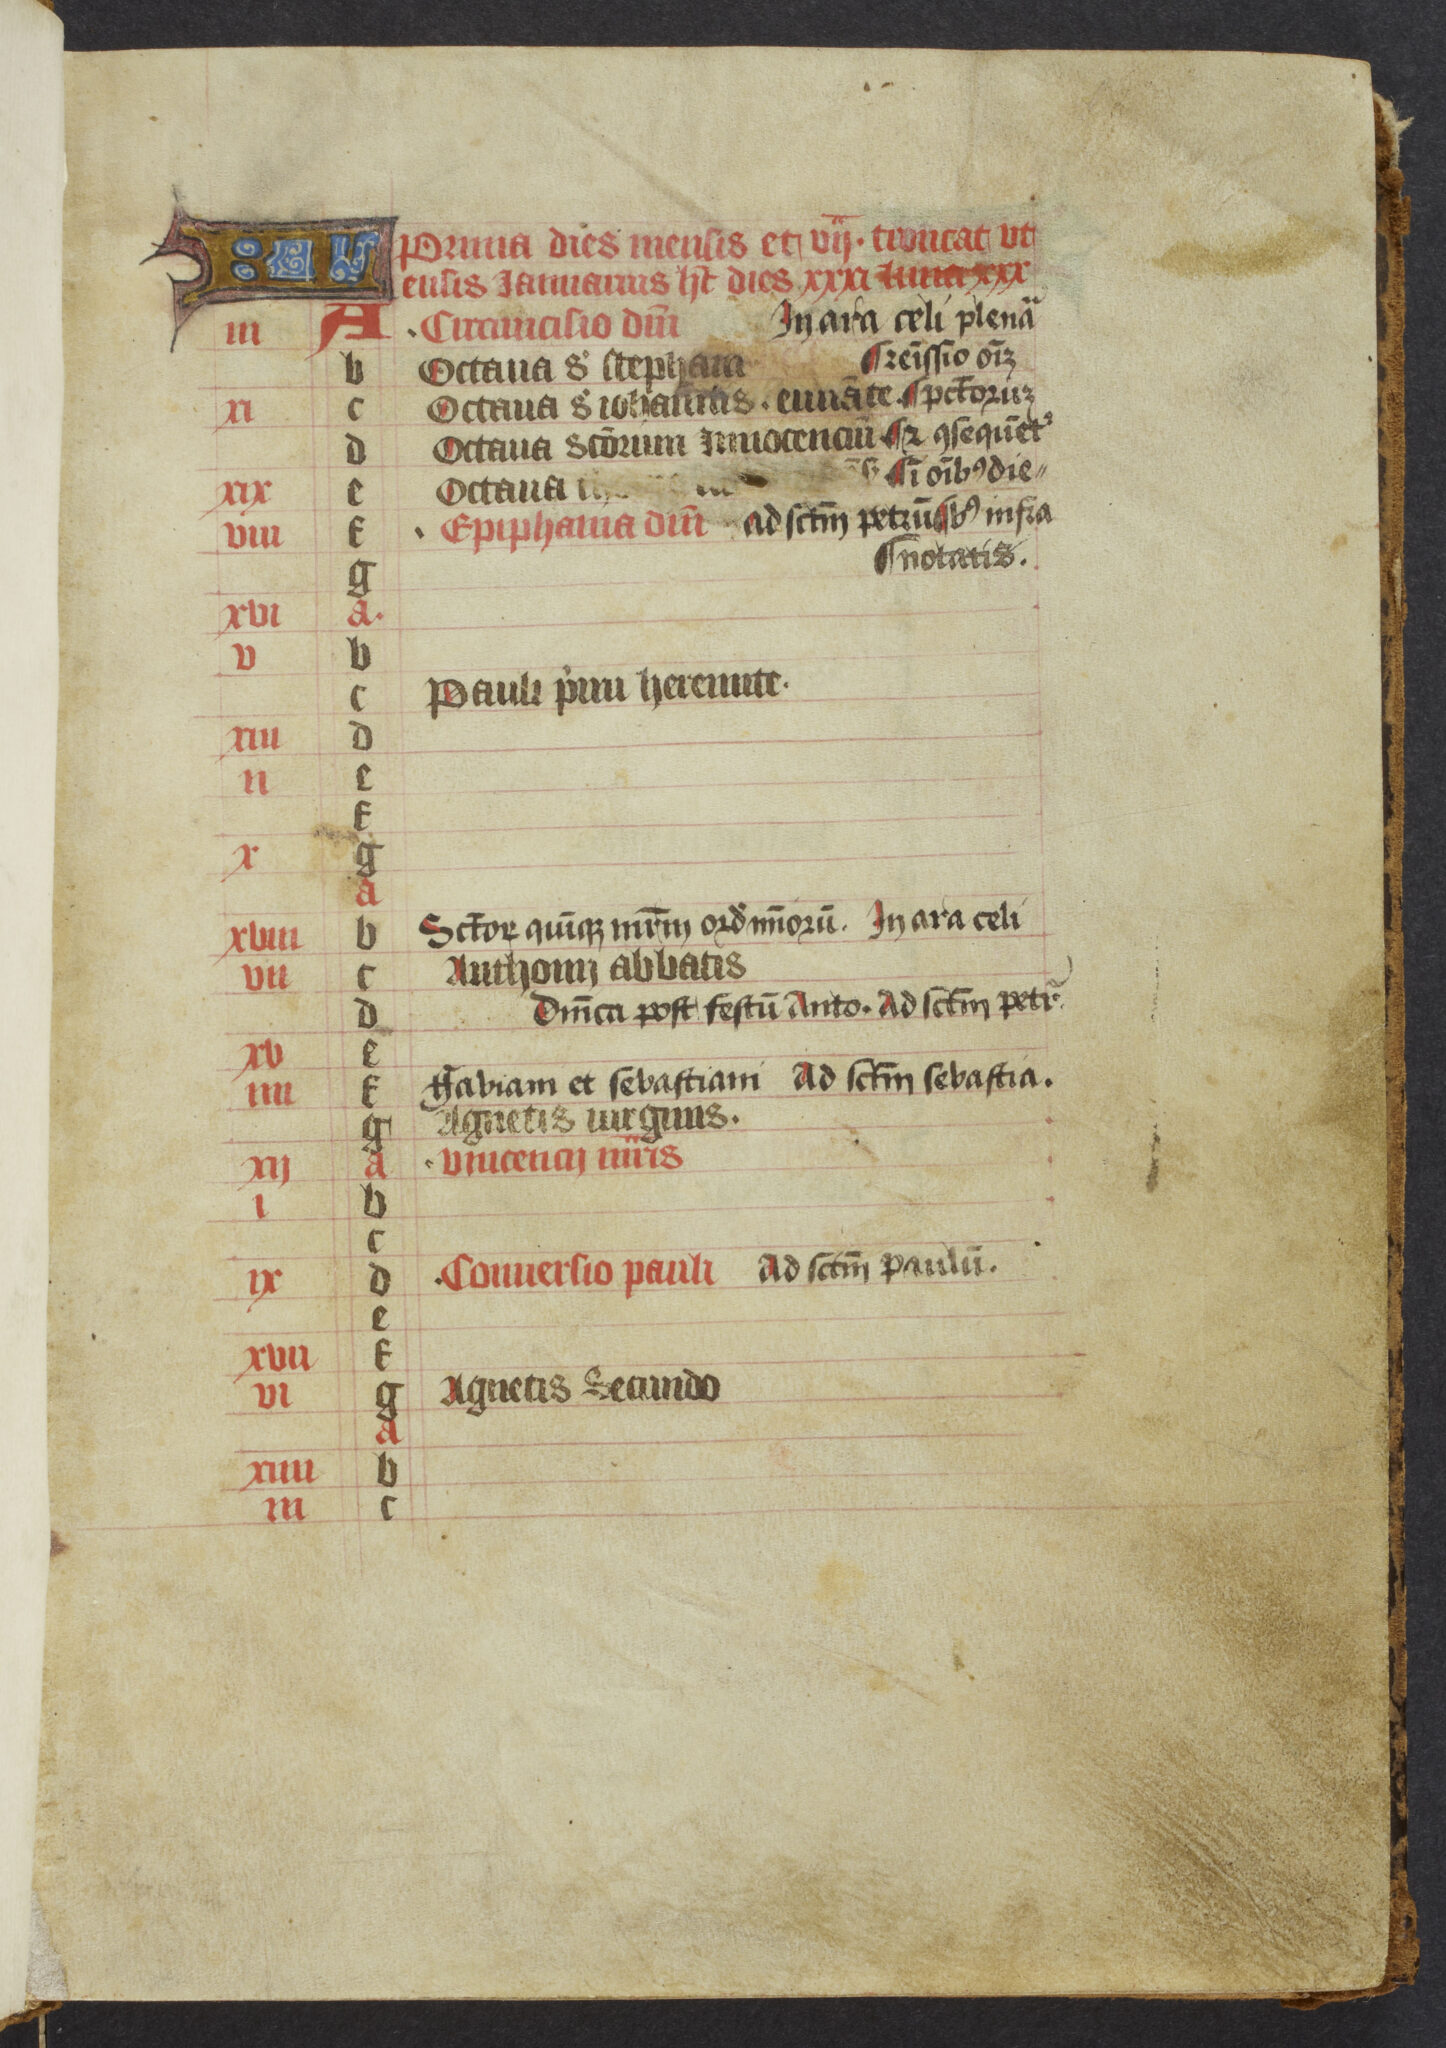 KL Prima dies mensis et vij. truncat ut
ensis Januarius ht dies xxxi luna xxx
iii A Circumcisio dni In ara celi plenā
b Octaua s stephani reīssio oīz
xi c Octaua s iohannis euuāte pctoruz
d Octaua Sctorum Innocenciū qsequēt
xix e Octaua oībꝰ die
viii f Epiphania dni Ad sctm petrū infra
g notatis.
xvi a
v b
c Pauli pimi heremite.
xiii d
ii e
f
x g
a
xviii b Sctoꝝ quīqꝫ mrm ord mīorū. In ara celi
vii c Anthonij abbatis
d Dmca post festū Anto. Ad sctm petr
xv e
iiii f Fabiani et sebastiani Ad sctm sebastia.
g Agnetis uirginis.
xij a vincencij mris
i b
c
ix d Conuersio pauli Ad sctm paulū.
e
xvii f
vi g Agnetis Secundo
a
xiiii b
iii c